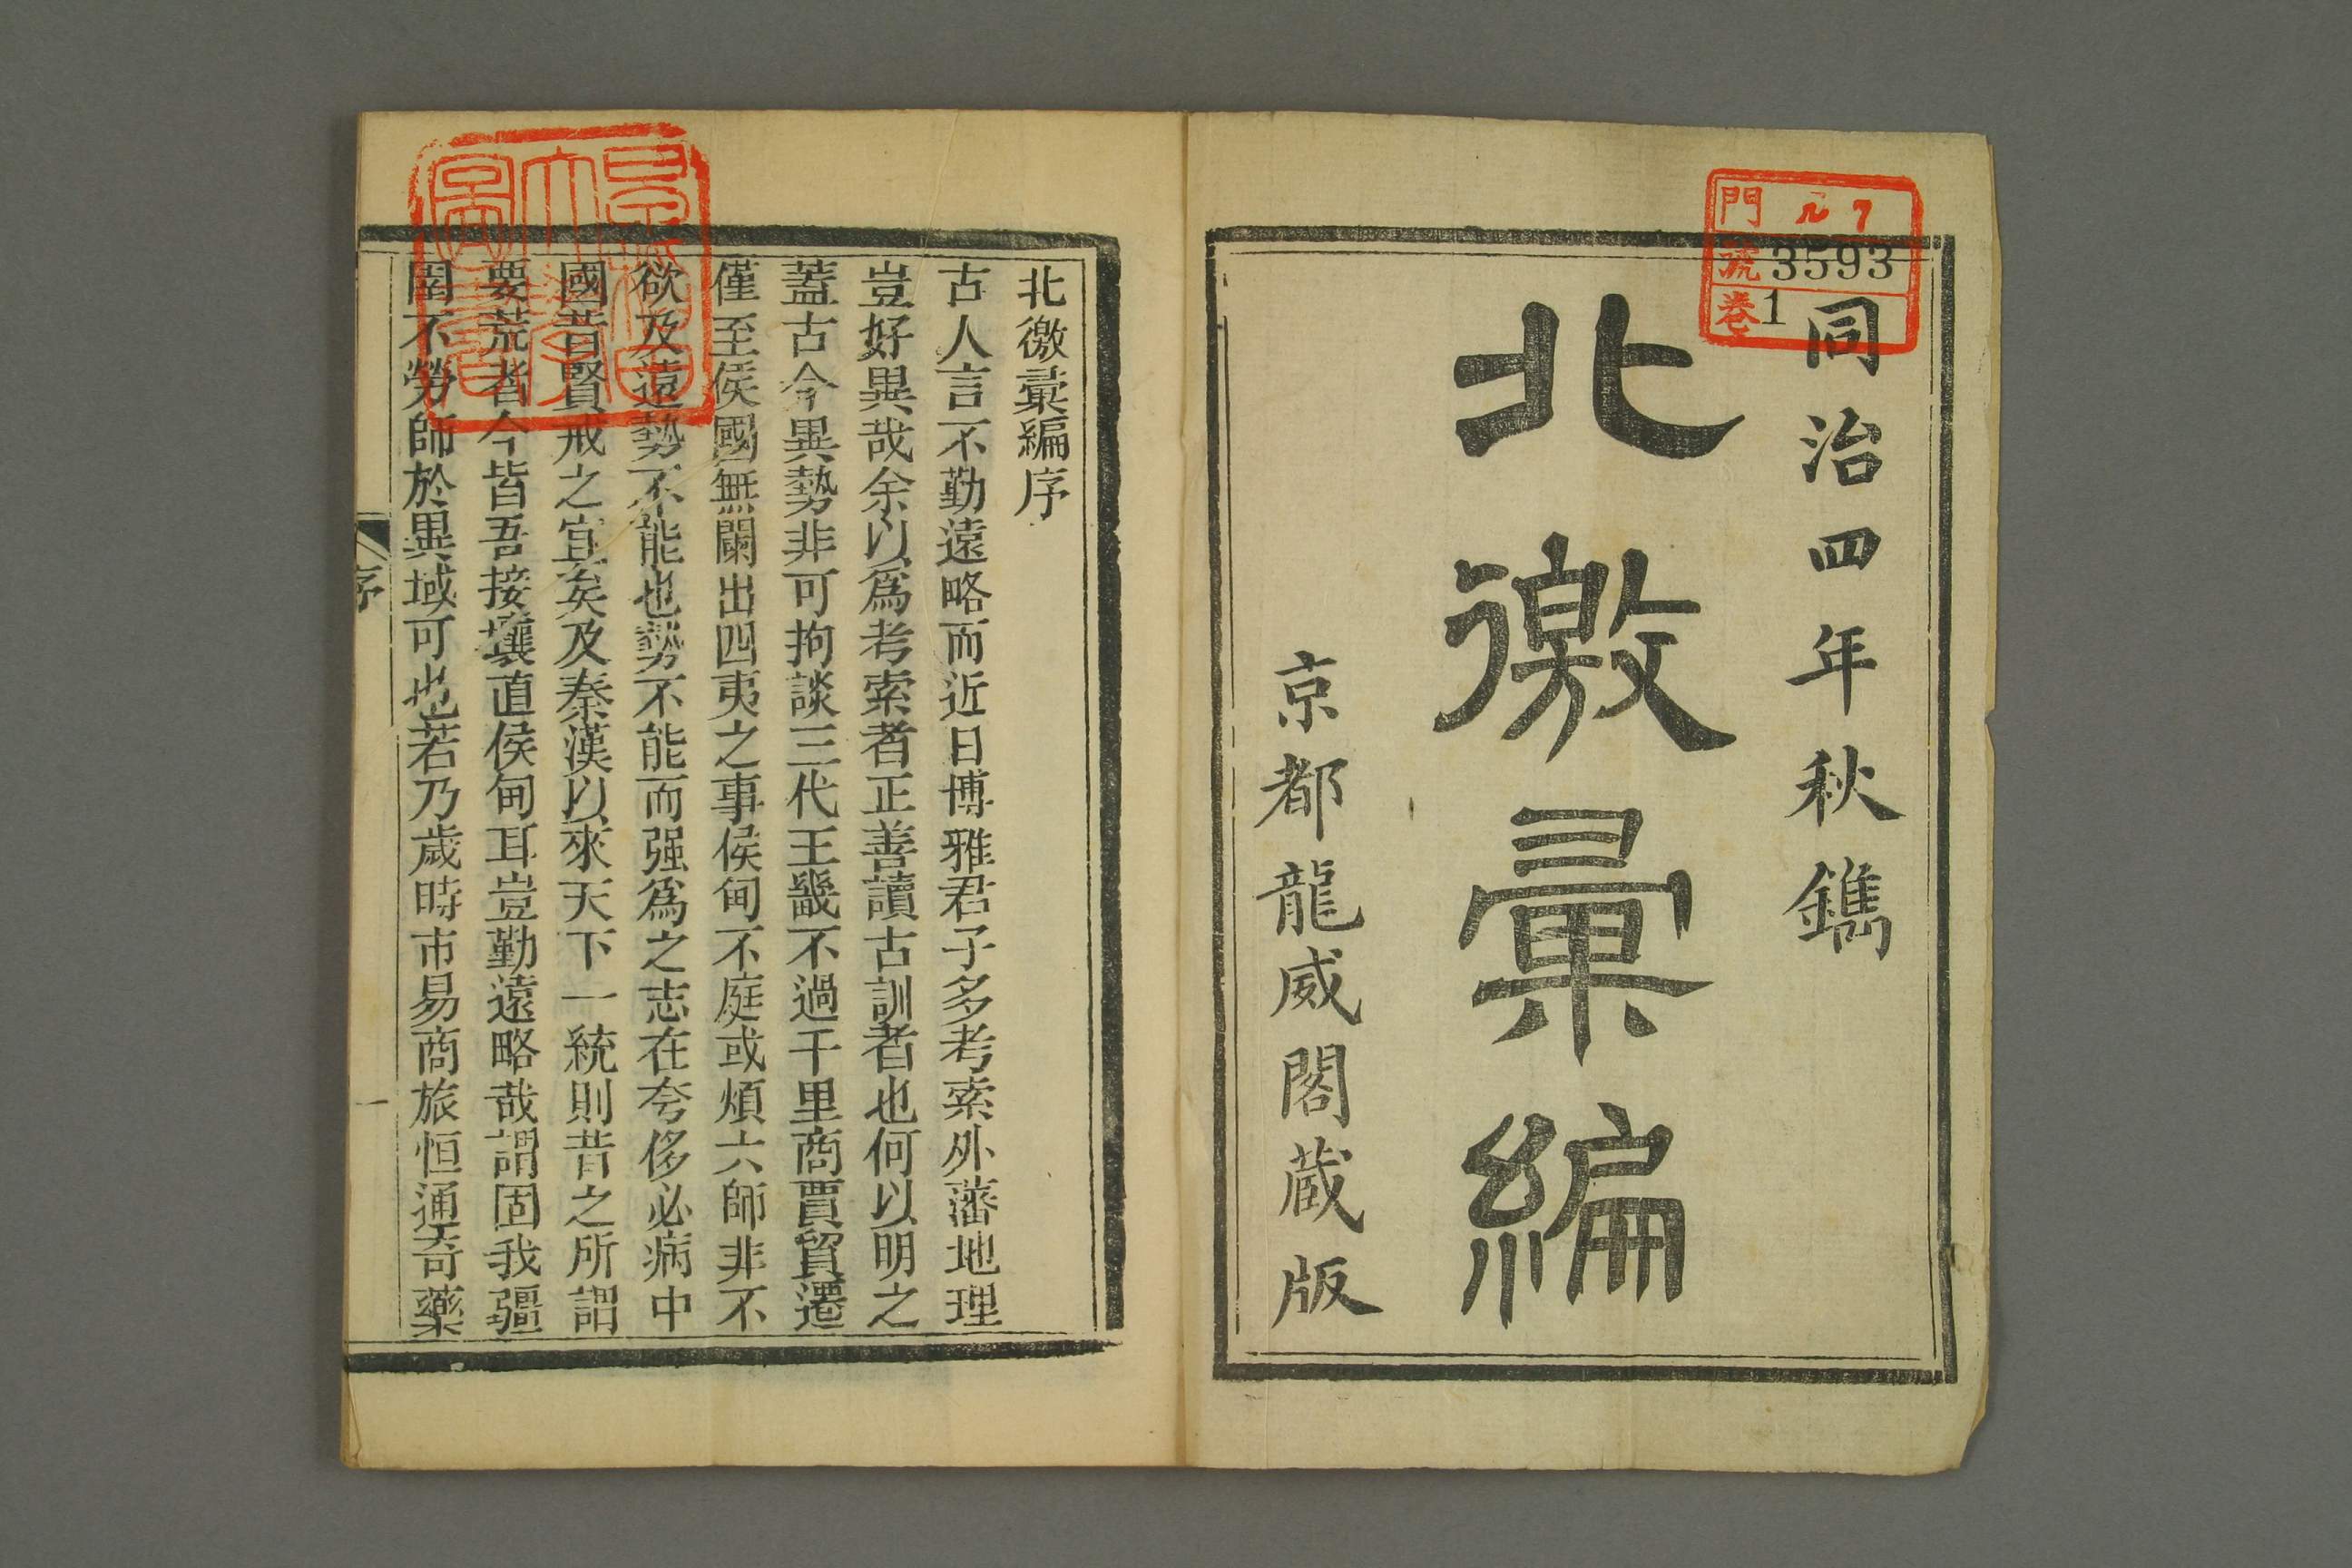 同治四年秋鐫
北徼彙編
京都龍威閣藏版
門 ル 7
號 3593
卷 1
北徼彙編序
古人言不勤遠略而近日博雅君子多考索外藩地理
豈好異哉余以爲考索者正善讀古訓者也何以明之
蓋古今異勢非可拘談三代王畿不過千里商賈貿遷
僅至侯國無闌出四夷之事侯甸不庭或煩六師非不
欲及遠勢不能也勢不能而强爲之志在夸侈必病中
國昔賢戒之宜矣及秦漢以來天下一統則昔之所謂
要荒者今皆吾接壤直侯甸耳豈勤遠略哉謂固我疆
圉不勞師於異域可也若乃歲時市易商旅恒通奇藥
序
一